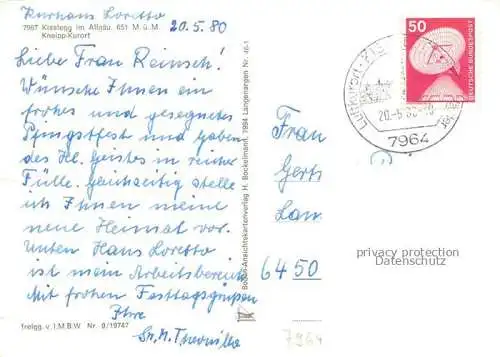 Kurhaus Loretto
7967 Kisslegg im Allgäu. 651 M ü.M
Kneipp-Kurort
20.5.80
Liebe Frau Reinsch!
Wünsche Ihnen ein
frohes und gesegnetes
Pfingstfest und Gaben
des Hl. Geistes in reicher
Fülle. Gleichzeitig stelle
ich Ihnen meine
neue Heimat vor.
Unten Haus Loretto
ist mein Arbeitsbereich
Mit frohen Festtagsgrüßen
Ihre
Sr. M.
freigg. v. I.M.B.W Nr. 9/19747
Boden-Ansichtskartenverlag H. Bockelmann, 7994 Langenargen Nr. 46-1
50
DEUTSCHE BUNDESPOST
Luftkurort
20.-5.80
7964
Frau
Gert
Lau
6450
7964
privacy protection
Datenschutz